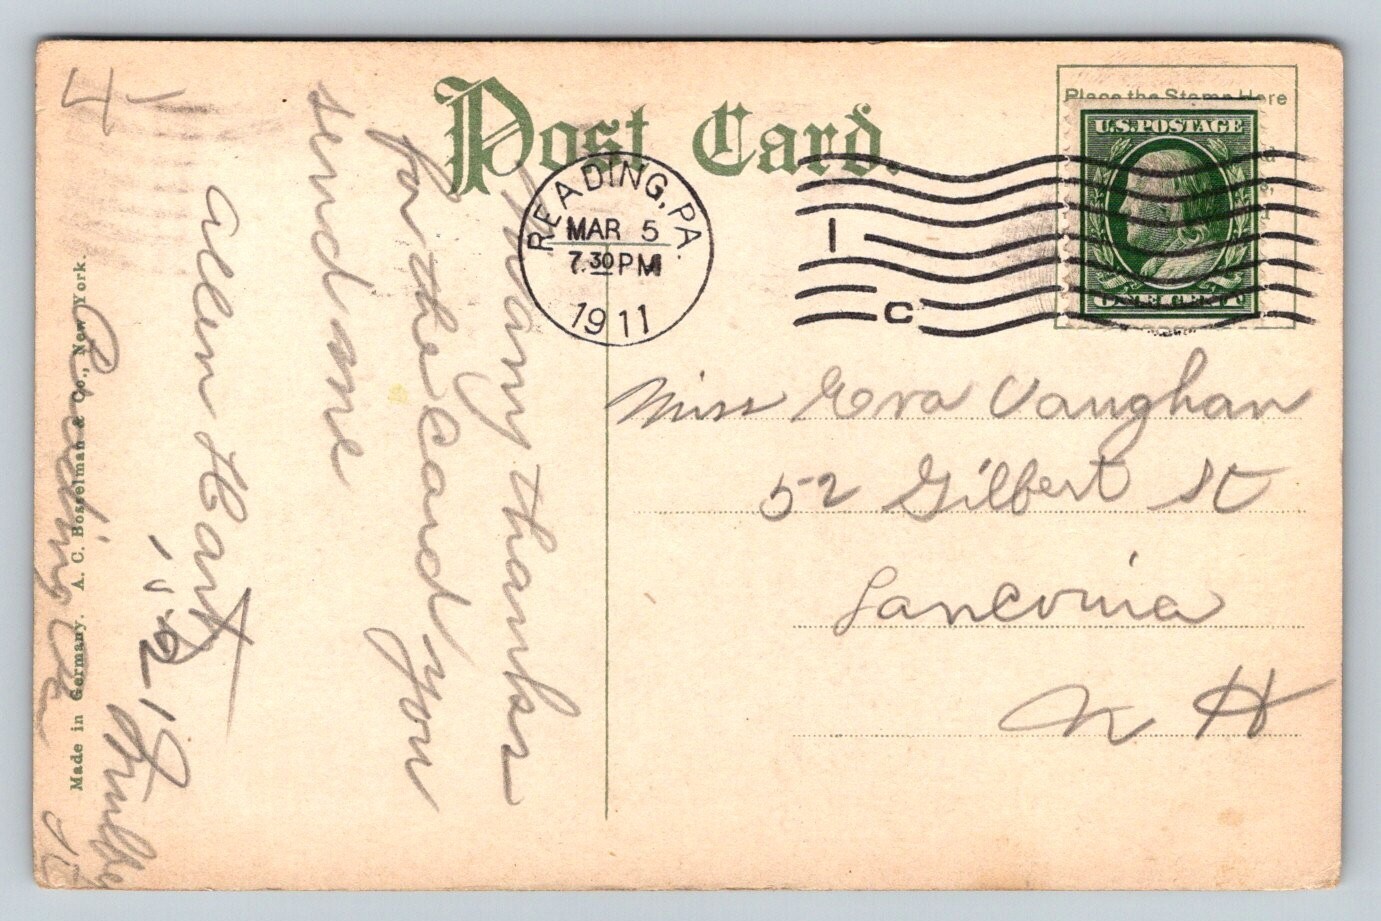 Post Card.
Place the Stamp Here
U.S. POSTAGE
ONE CENT
READING, PA.
MAR 5
7.30 PM
1911
1
C
Many thanks
for the card you
send me
Allen Hart
Reading Pa
Made in Germany. A. C. Bosselman & Co., New York.
Miss Eva Vaughan
52 Gilbert St
Lanconia
N H